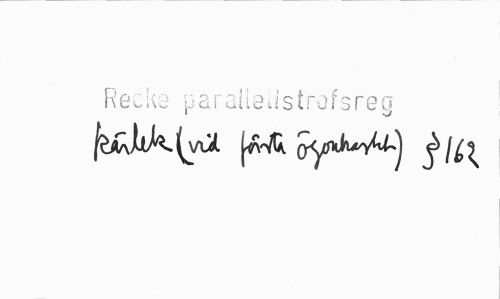 Recke parallellstrofsreg
kärlek (vid första ögonkastet) § 162